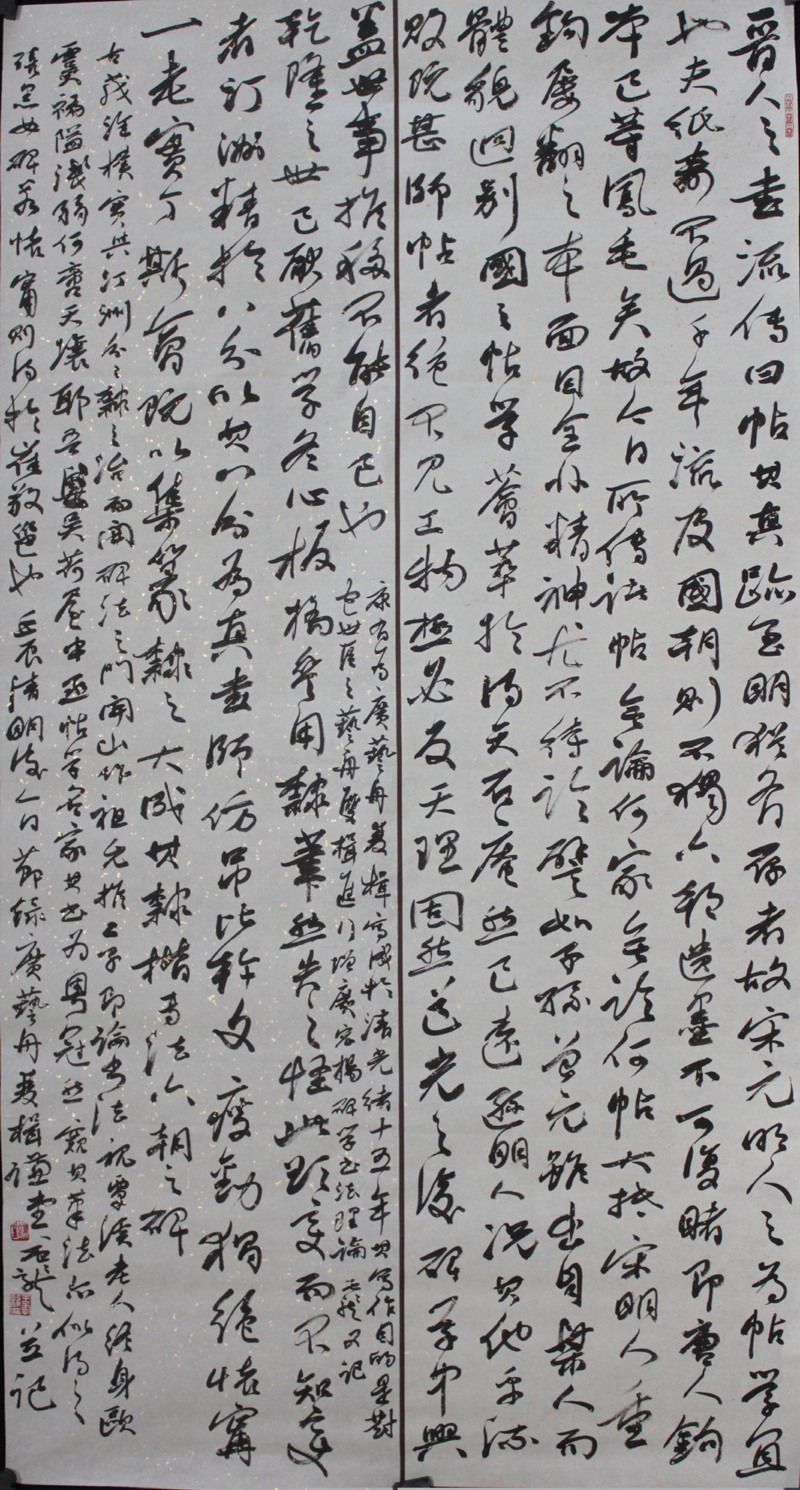 晋人之書流傳曰帖其真跡至明猶有存者故宋元明人之為帖學宜
也夫紙壽不過千年流及國朝則不獨六朝遺墨不可復睹即唐人鉤
本已等鳳毛矣故今日所傳諸帖無論何家無論何帖大抵宋明人重
鉤屢翻之本面目全非精神尤不待論譬如子孫曾元雖出自某人而
體貌迥別國朝之帖學薈萃於得天石庵然已遠遜明人況其他乎流
敗既甚師帖者絕不見工物極必反天理固然道光之後碑學中興
蓋世事推移不能自已也
康有為廣藝舟雙楫寫成於清光緒十五年其寫作目的是對
包世臣之藝舟雙楫進行增廣宏揚碑學書法理論 又記
乾隆之世已厭舊學冬心板橋參用隸筆然失之怪此欲變而不知變
者汀洲精於八分以其八分為真書師仿吊比干文瘦勁獨絕懷寧
一老實丁斯會既以集篆隸之大成其隸楷專法六朝之碑
古茂渾樸實與汀洲分分隸之治而開碑法之門開山作祖允推二子即論書法視覃溪老人終身歐
虞褊隘淺弱何啻天壤耶吾粵吳荷屋中丞帖學名家其書為粵冠然窺其筆法亦似得之
張黑女碑若懷寧則得於崔敬邕也 清明後 日節錄廣藝舟雙楫 並記